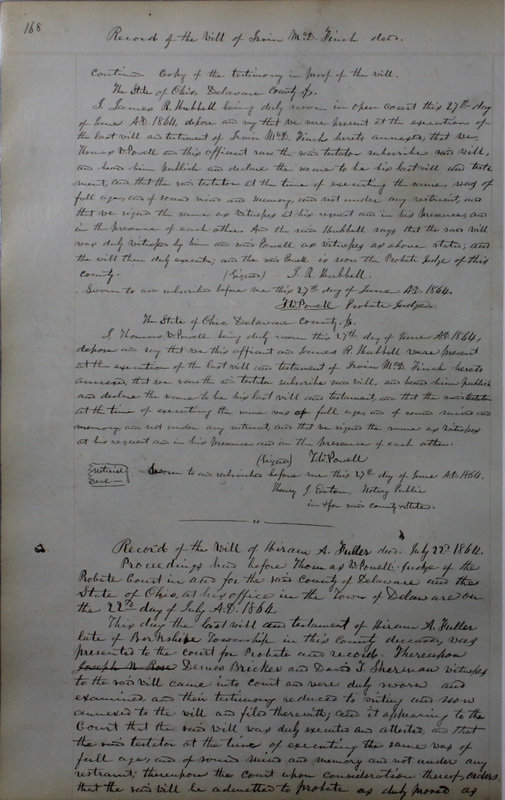 168
Record of the Will of Irvin McD. Finch decd.
Continued Coohy of the testimony in proof of the will.
The State of Ohio Delaware County Ss.
I James R. Hubbell being duly sworn in open Court this 27th day
of June A.D. 1864, depose and say that we were present at the execution of
the last will and testament of Irwin McD. Finch hereto annexed, that we
Thomas W Powell and this affiant saw the said testator subscribe said will,
and heard him publish and declare the same to be his last will and testa
ment, and that the said testator at the time of executing the same, was of
full age, and of sound mind and memory, and not under any restraint, and
that we signed the same as witnesses at his request and in his presence, and
in the presence of each other. And the said Hubbell says that the said will
was duly witnessed by him and said Powell as witnesses as above stated, and
the will then duly executed; and the said Powell is now the Probate Judge of this
County. (Signed) J. R. Hubbell.
Sworn to and subscribed before me this 27th day of June A.D. 1864.
T.W. Powell Probate Judge.
The State of Ohio Delaware County, Ss.
I, Thomas W Powell being duly sworn this 27th day of June A.D. 1864,
depose and say that we this affiant and James R. Hubbell were present
at the execution of the last will and testament of Irwin McD. Finch hereto
annexed, that we saw the said testator subscribe said will, and heard him publish
and declare the same to be his last will and testament, and that the said testator
at the time of executing the same was of full age, and of sound mind and
memory, and not under any restraint, and that we signed the same as witnesses
at his request and in his presence and in the presence of each other.
(Signed) T.W. Powell
notarial seal
Sworn to and subscribed before me this 27th day of June A.D. 1864.
Henry J. Eaton, Notary Public
in & for said county & State.
Record of the Will of Hiram A. Fuller decd. July 22d 1864.
Proceedings had before Thomas W Powell Judge of the
Probate Court in and for the said County of Delaware and the
State of Ohio, at his office in the Town of Delaware on
the 22nd day of July A.D. 1864.
This day the last will and testament of Hiram A. Fuller
late of Berkshire Township in this County deceased, was
presented to the court for Probate and record. Thereupon
Joseph N. Rose Demas Bricker and David T. Sherman witnesses
to the said will came into Court and were duly sworn and
examined and their testimony reduced to writing and now
annexed to the will and filed therewith; and it appearing to the
Court that the said will was duly executed and attested, and that
the said testator at the time of executing the same was of
full age, and of sound mind and memory and not under any
restraint; thereupon the Court upon consideration thereof, orders
that the said will be admitted to probate as duly proved as